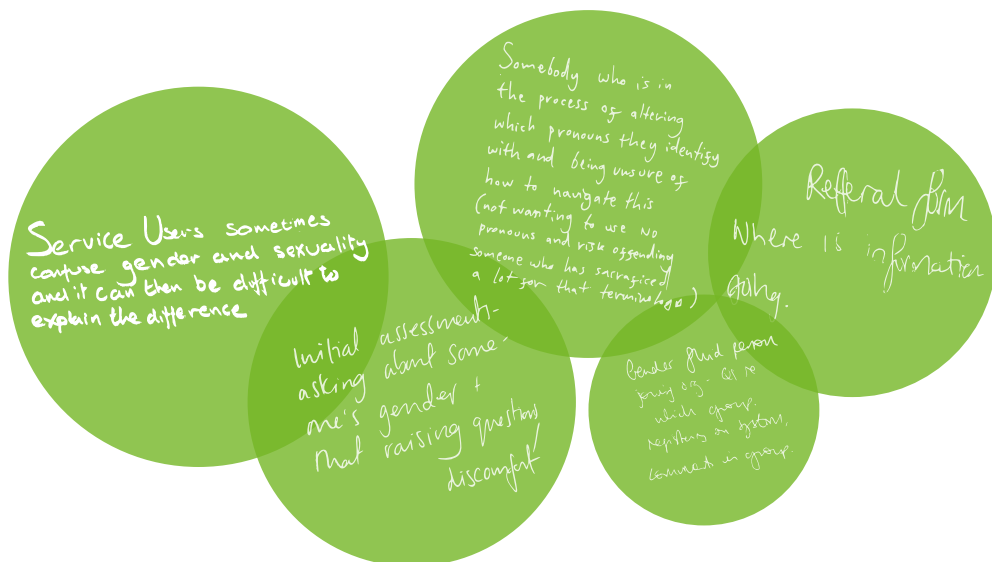 Service Users sometimes
confuse gender and sexuality
and it can then be difficult to
explain the difference
Initial assessment -
asking about some-
one's gender +
that raising questions/
discomfort
Somebody who is in
the process of altering
which pronouns they identify
with and being unsure of
how to navigate this
(not wanting to use no
pronouns and risk offending
someone who has sacrificed
a lot for that terminology)
Gender fluid person
joining org. Qs re
which group.
registering on systems,
comments in group.
Refferal form
Where is information
going.